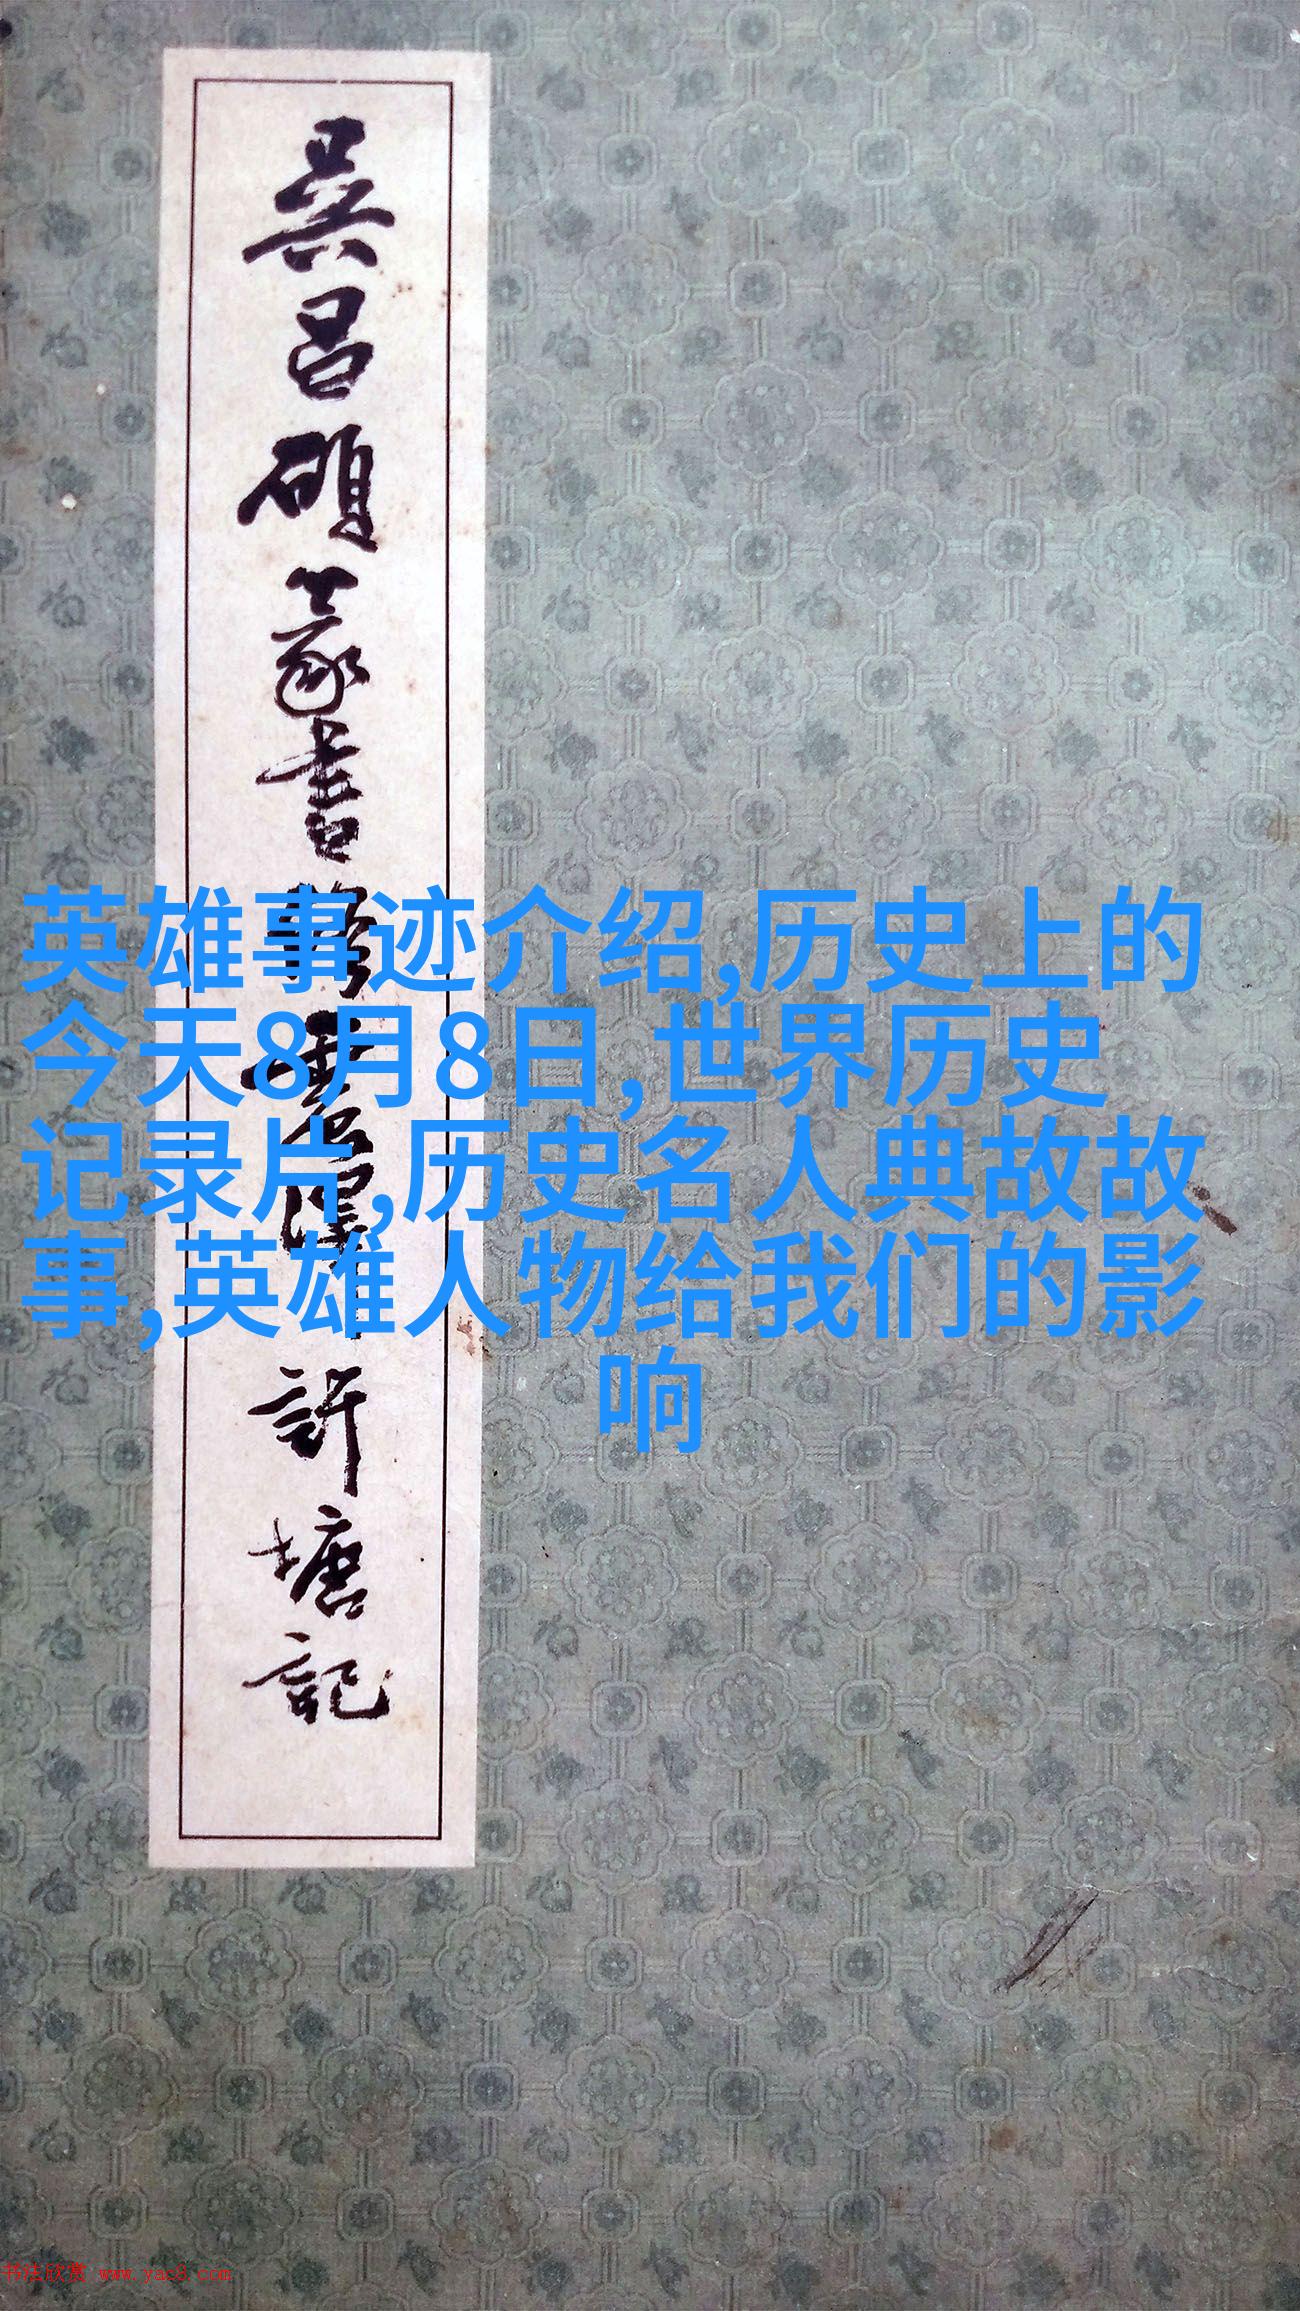 吴昌硕篆书修震泽许塘记
英雄事迹介绍,历史上的
今天8月8日,世界历史
记录片,历史名人典故故
事,英雄人物给我们的影
响
书法欣赏 www.yac8.com